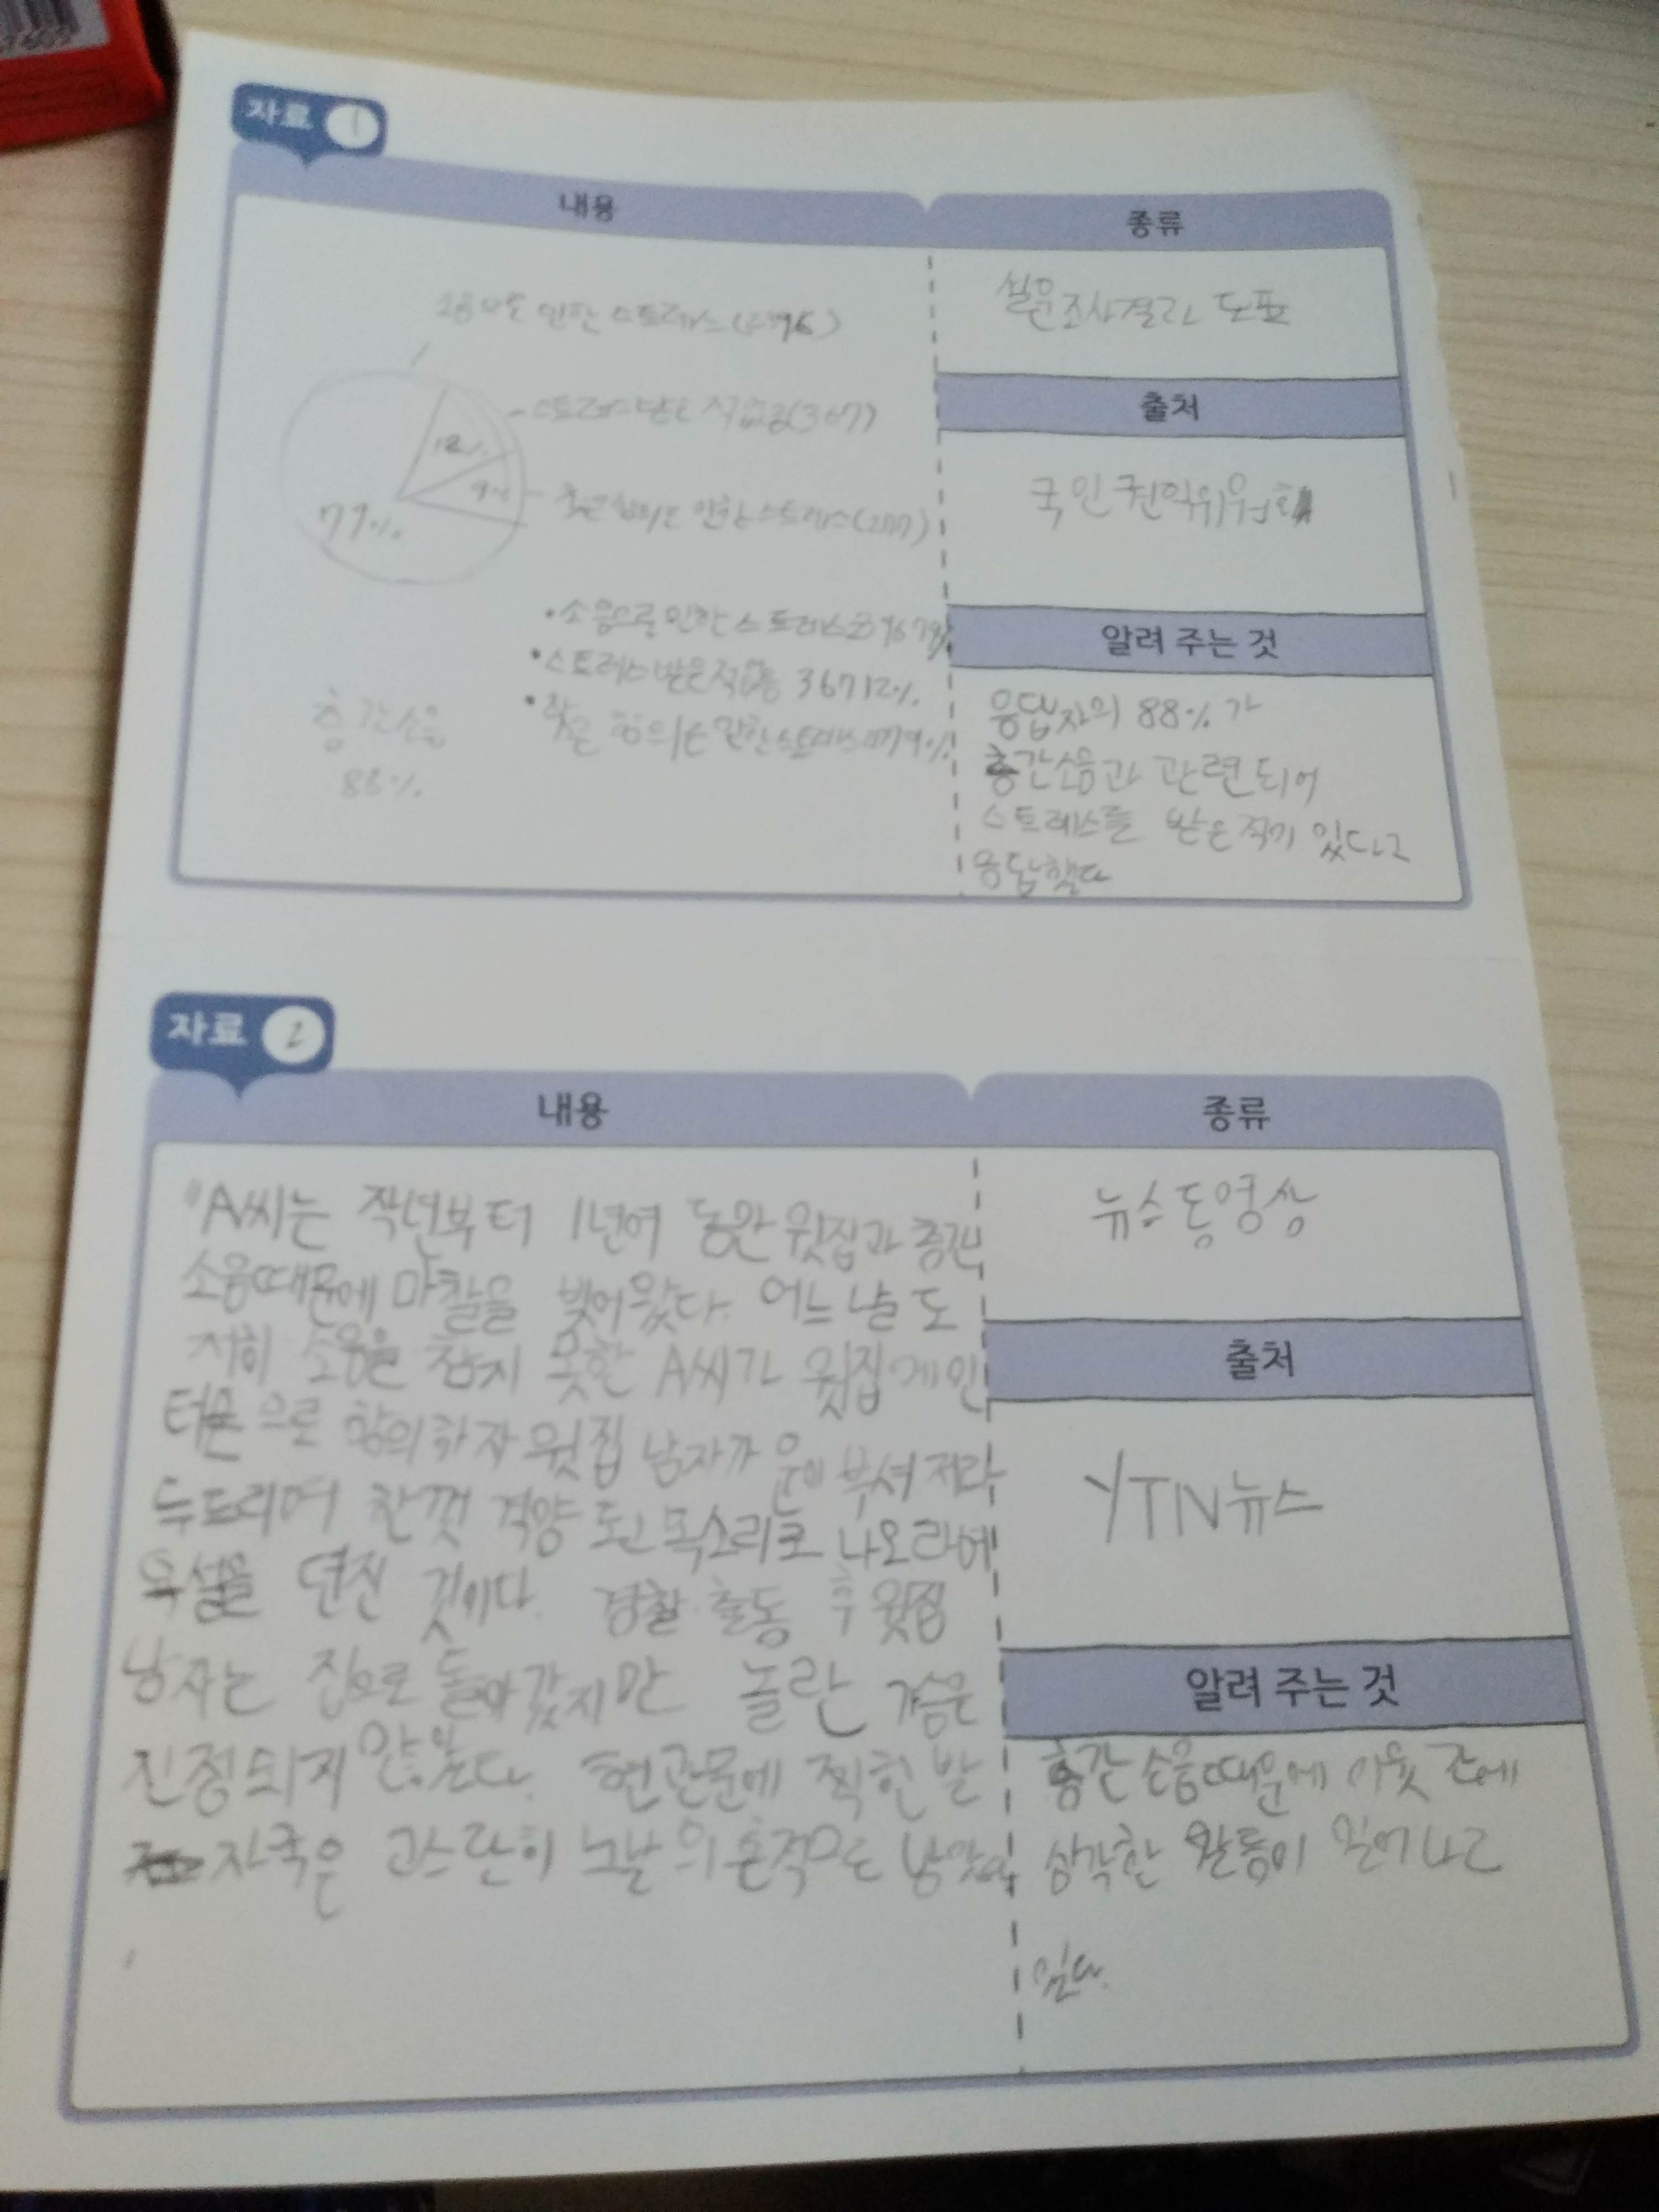 자료 1
내용
종류
소음으로 인한 스트레스
스트레스 받은 적 없음(367)
잦은 항의로 인한 스트레스(277)
12%
9%
77%
•소음으로 인한 스트레스 2396 79%
•스트레스 받은적없음 367 12%
•잦은 항의로 인한 스트레스 9%
층간소음
88%
설문조사결과 도표
출처
국민권익위원회
알려 주는 것
응답자의 88%가
층간소음과 관련되어
스트레스를 받은적이 있다고
응답했다
자료 2
내용
종류
"A씨는 작년부터 1년여 동안 윗집과 층간
소음때문에 마찰을 빚어왔다. 어느 날 도
저히 소음을 참지 못한 A씨가 윗집에 인
터폰으로 항의하자 윗집 남자가 문이 부셔져라
두드리며 한껏 격양 된 목소리로 나오라며
욕설을 던진 것이다. 경찰 출동 후 윗집
남자는 집으로 돌아갔지만 놀란 가슴은
진정되지 않았다. 현관문에 찍힌 발
자국은 고스란히 그날의 흔적으로
뉴스동영상
출처
YTN뉴스
알려 주는 것
층간 소음때문에 이웃 간에
심각한 활동이 일어나고
있다.